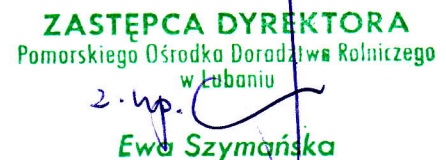 ZASTĘPCA DYREKTORA
Pomorskiego Ośrodka Doradztwa Rolniczego
w Lubaniu
z. up.
Ewa Szymańska